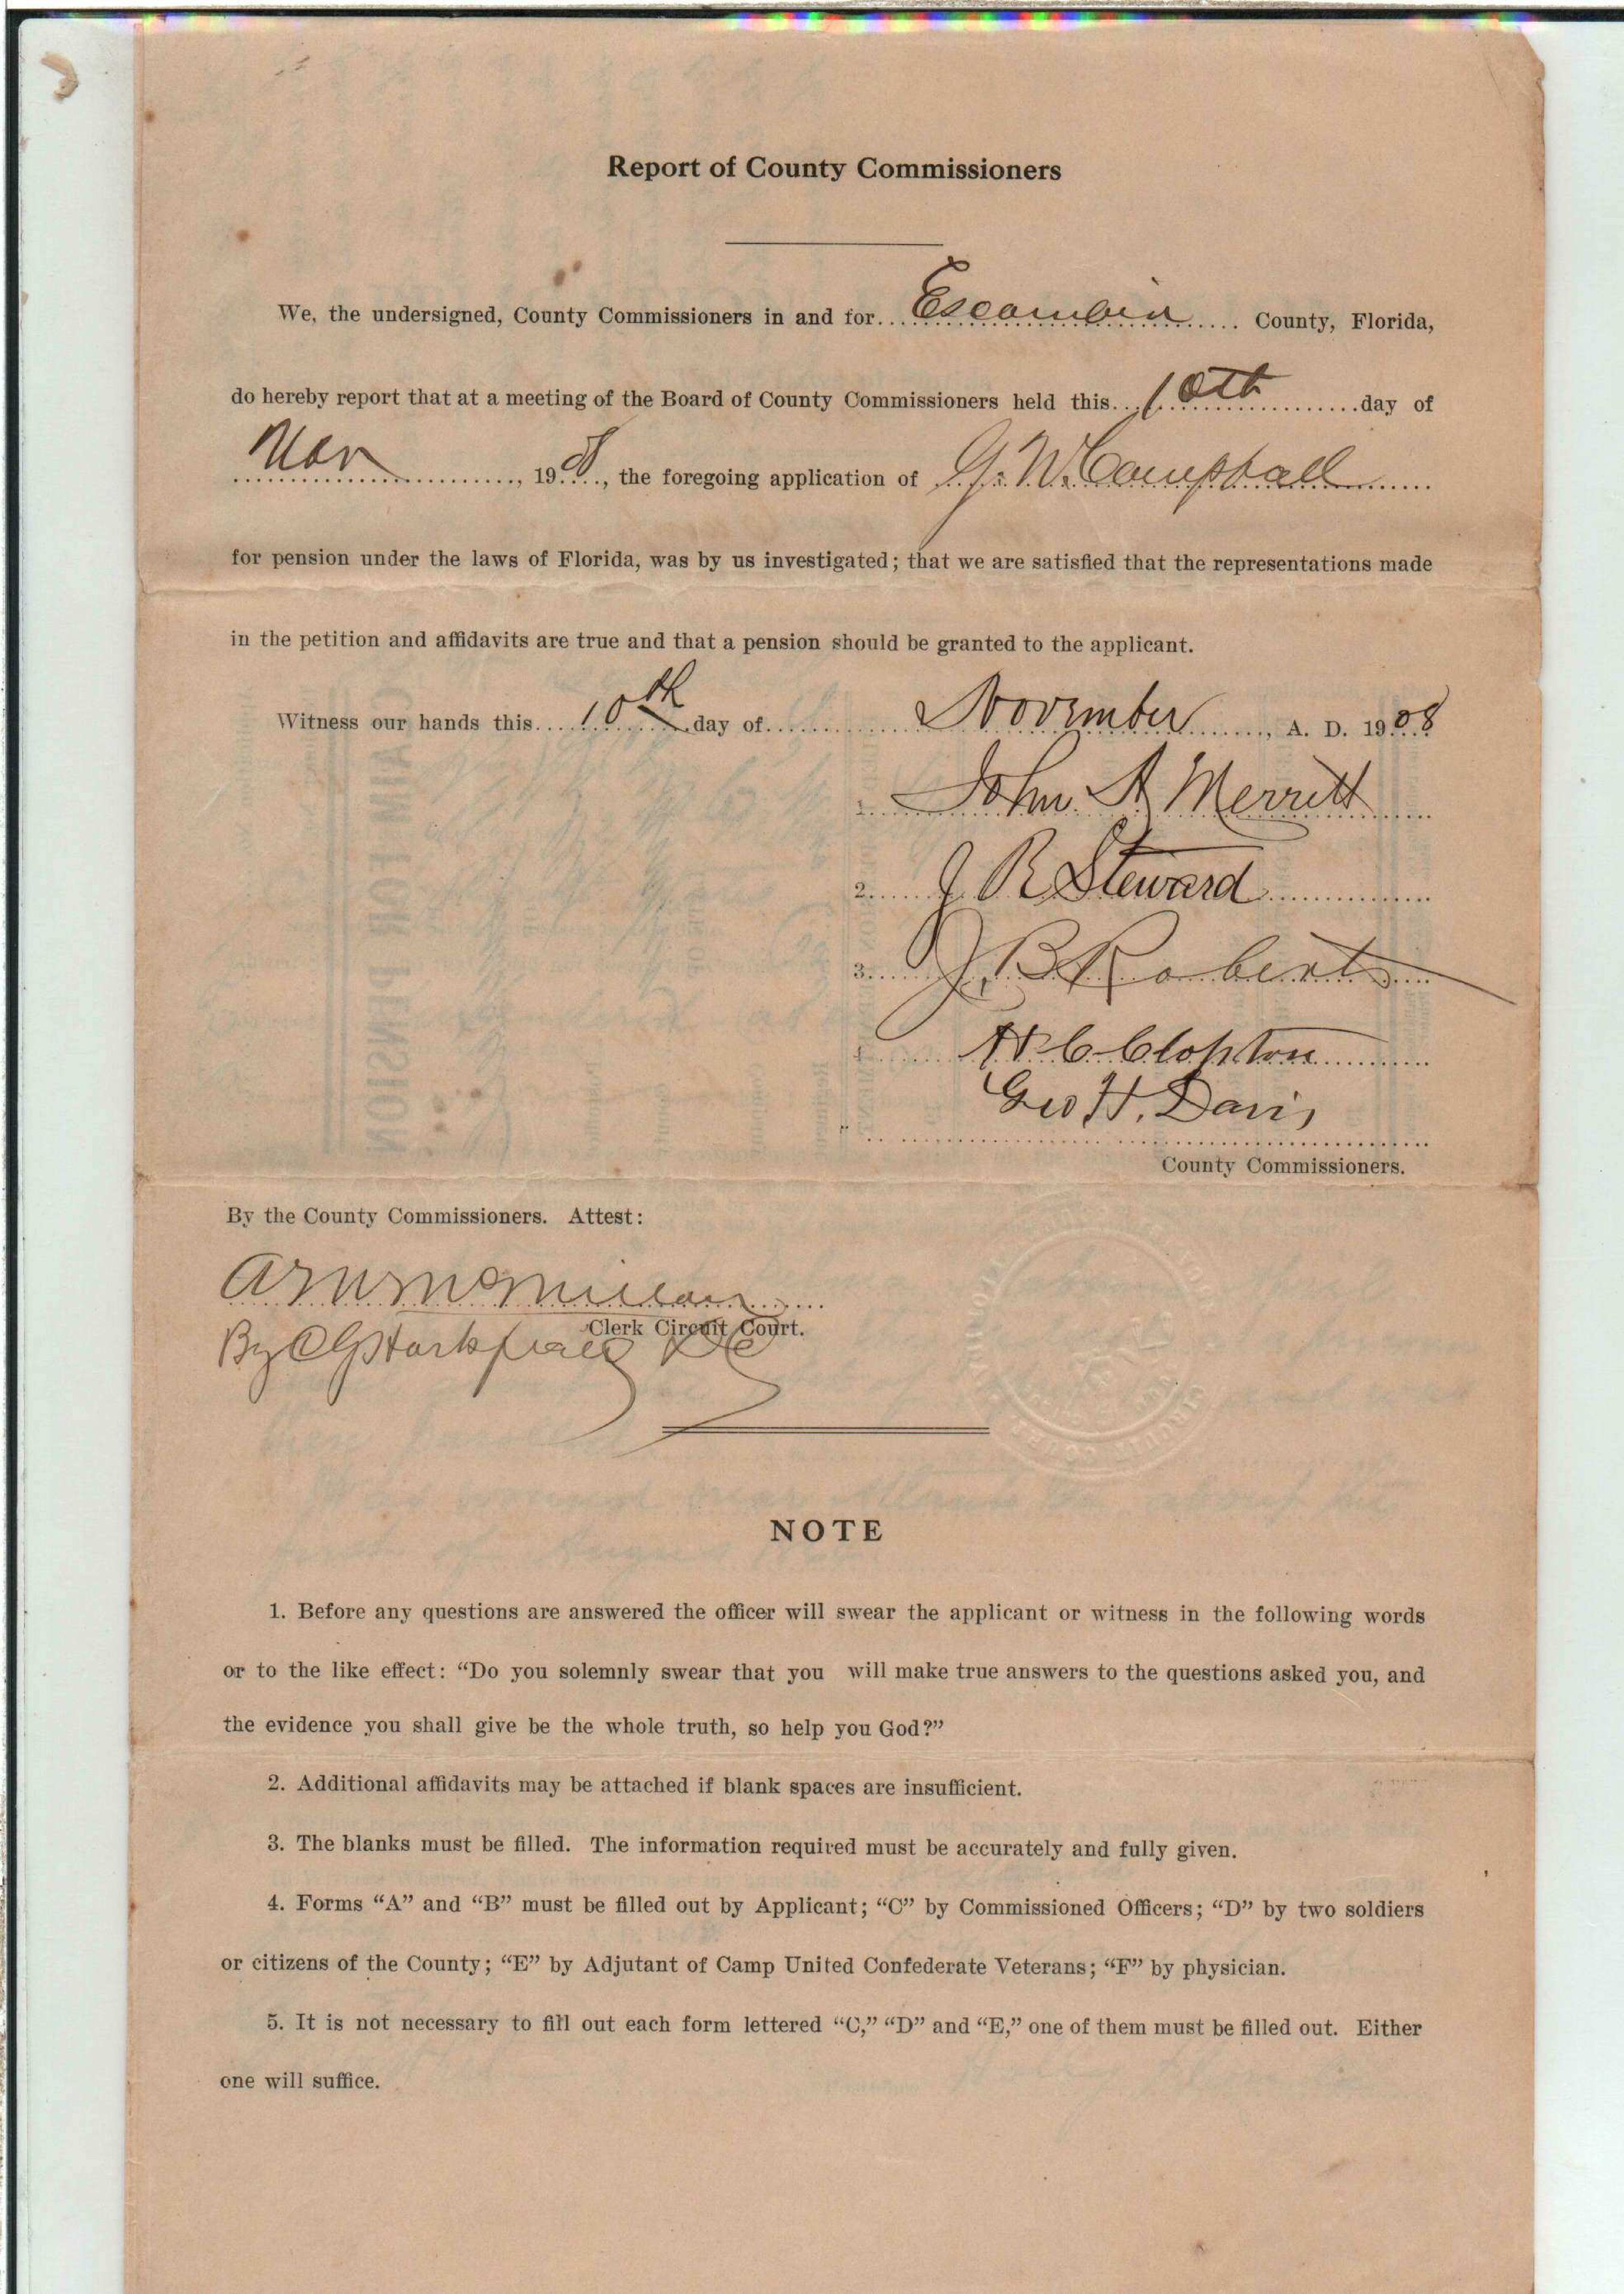 Report of County Commissioners
We, the undersigned, County Commissioners in and for Escambia County, Florida,
do hereby report that at a meeting of the Board of County Commissioners held this 10th day of
Nov, 198, the foregoing application of G. W. Campball
for pension under the laws of Florida, was by us investigated; that we are satisfied that the representations made
in the petition and affidavits are true and that a pension should be granted to the applicant.
Witness our hands this 10th day of November, A. D. 1908
1. John A Merritt
2. J R Steward
3. J. B Roberts
4. C Clopton
Geo H. Davis
County Commissioners.
By the County Commissioners. Attest:
McMillan
Clerk Circuit Court.
By DC
NOTE
1. Before any questions are answered the officer will swear the applicant or witness in the following words
or to the like effect: “Do you solemnly swear that you will make true answers to the questions asked you, and
the evidence you shall give be the whole truth, so help you God?”
2. Additional affidavits may be attached if blank spaces are insufficient.
3. The blanks must be filled. The information required must be accurately and fully given.
4. Forms “A” and “B” must be filled out by Applicant; “C” by Commissioned Officers; “D” by two soldiers
or citizens of the County; “E” by Adjutant of Camp United Confederate Veterans; “F” by physician.
5. It is not necessary to fill out each form lettered “C,” “D” and “E,” one of them must be filled out. Either
one will suffice.